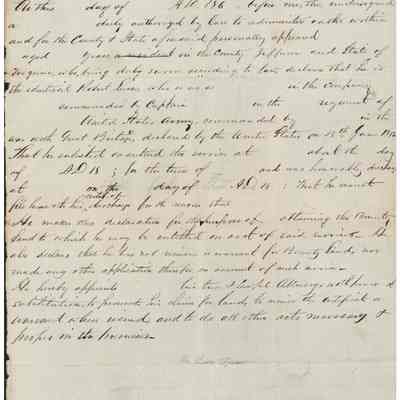 On this day of A.D. 186 before me, the undersigned
a duly authorized by law to administer oaths within
and for the County & State aforesaid, personally appeared
aged years a resident in the County Jefferson and State of
who, being duly sworn according to law, declares that he is
the identical Robert who was a in the Company
commanded by Captain in the regiment of
United States Army, commanded by in the
war with Great Britain, declared by the United States, on 18th June 1812
That he enlisted or entered the service at about the day
of A.D. 18 ; for the term of and was honorably discharged
at on the day of A.D. 18 ; That he cannot
file herewith his discharge for the reason that
He makes this declaration for the purpose of obtaining the Bounty
Land to which he may be entitled on acct of said service. He
also declares that he has not received a warrant for Bounty Land, nor
made any other application therefor, on account of such service.
He hereby appoints his true & lawful Attorney, with power of
substitution, to prosecute his claim for land, to receive the certificate or
warrant when issued, and to do all other acts necessary &
proper in the premises.